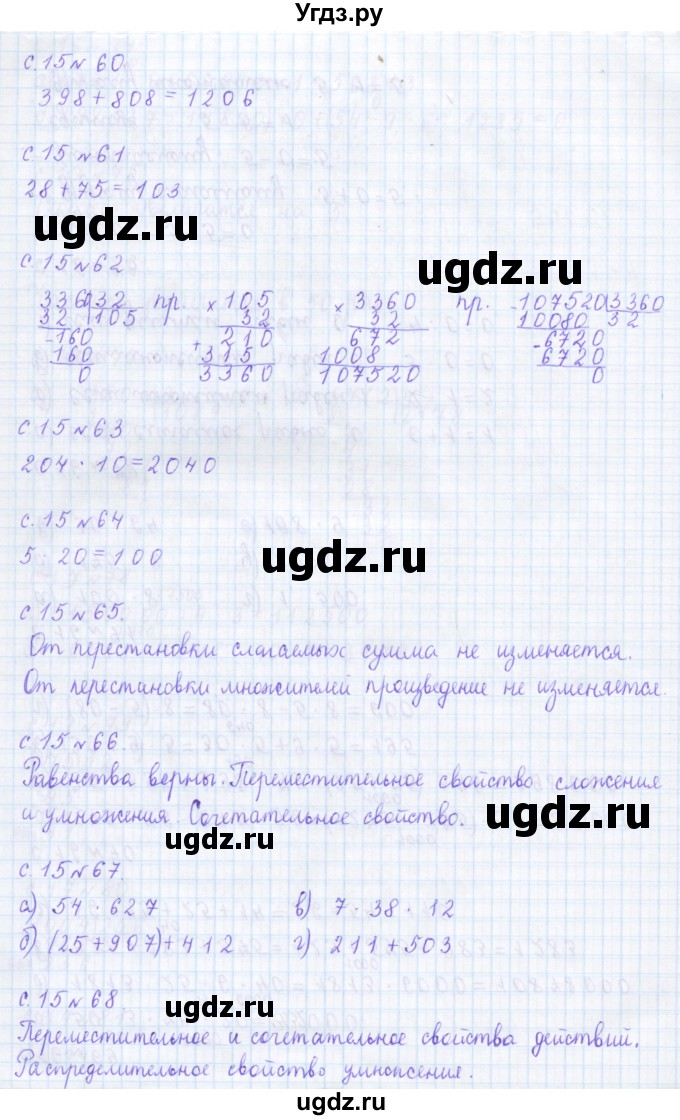 Угдз.ру
с.15 № 60
398+808=1206
с.15 № 61
28+75=103
ugdz.ru
ugdz.ru
с.15 № 62
3360 32 пр. × 105 × 3360 пр. -107520 3360
32 105 32 32 10080 32
-160 + 210 672 -6720
160 315 1008 6720
0 3360 107520 0
с.15 № 63
204 · 10=2040
с.15 № 64
ugdz.ru
5 · 20=100
с.15 № 65.
От перестановки слагаемых сумма не изменяется.
От перестановки множителей произведение не изменяется.
с.15 № 66.
Равенства верны. Переместительное свойство сложения
и умножения. Сочетательное свойство.
ugdz.ru
ugdz.ru
с.15 № 67.
а) 54 · 627 в) 7 · 38 · 12
б) (25+907)+412 г) 211+503
с.15 № 68
ugdz.ru
Переместительное и сочетательное свойства действий.
Распределительное свойство умножения.
ugdz.ru